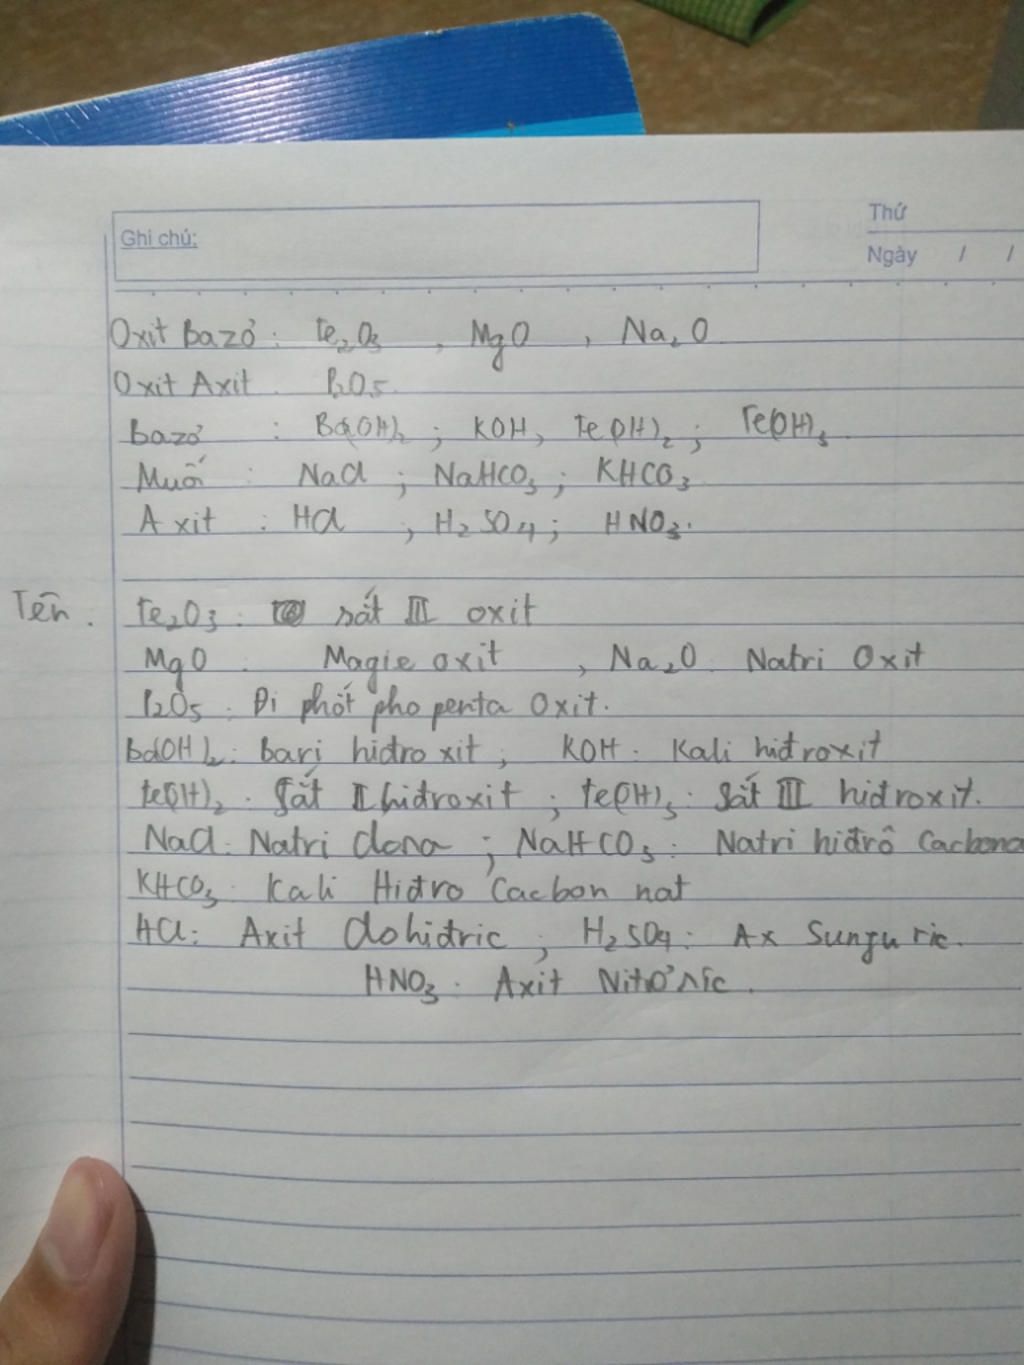 Ghi chú:
Thứ
Ngày / /
Oxit Bazơ : Fe2O3 , MgO , Na2O
Oxit Axit : P2O5.
Bazơ : Ba(OH)2 ; KOH, Fe(OH)2 ; Fe(OH)3
Muối : NaCl ; NaHCO3 ; KHCO3
Axit : HCl , H2SO4 ; HNO3.
Tên : Fe2O3 : sắt III oxit
MgO : Magie oxit , Na2O : Natri Oxit
P2O5 : Đi phốt pho penta Oxit.
Ba(OH)2 : Bari hiđro xit ; KOH : Kali hiđroxit
Fe(OH)2 : Sắt II hiđroxit ; Fe(OH)3 : Sắt III hiđroxit.
NaCl : Natri clorua ; NaHCO3 : Natri hiđrô Cacbona
KHCO3 : Kali Hiđro Cacbon nat
HCl : Axit Clohiđric ; H2SO4 : Ax Sunfu ric.
HNO3 : Axit Nitơ ric.